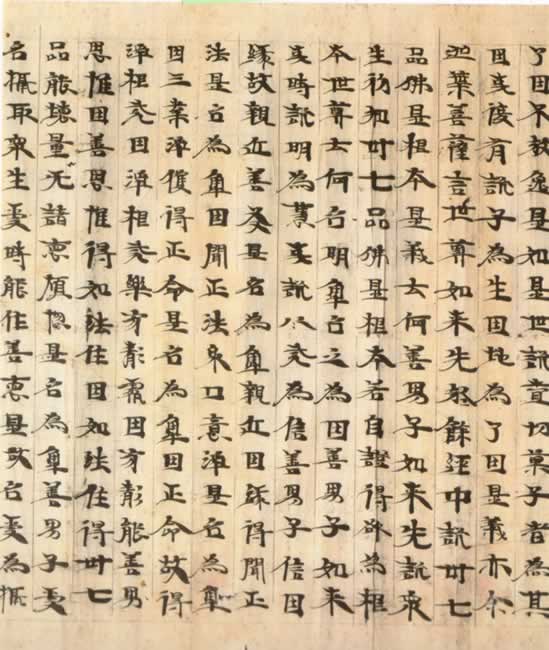 了因不放逸是如是世說菓子者為其
因或復有說子為生因地為了因是義亦尒
迦葉菩薩言世尊如来先於餘經中說卅七
品佛是根本是義云何善男子如来先說衆
生初知卅七品佛是根本若自證得欲為根
本世尊云何名明觸名之為因善男子如来
或時說明為慧或說八戒為信善男子信因
緣故親近善友是名為觸親近因緣得聞正
法是名為觸因聞正法身口意淨是名為觸
因三業淨獲得正命是名為觸因正命故得
淨根戒因淨根戒樂寂靜處因寂靜能善男
思惟因善思惟得如法住因如法住得卅七
品能壞量无諸惡煩惱是名為觸善男子受
名攝取衆生受時能作善惡是故名受為攝